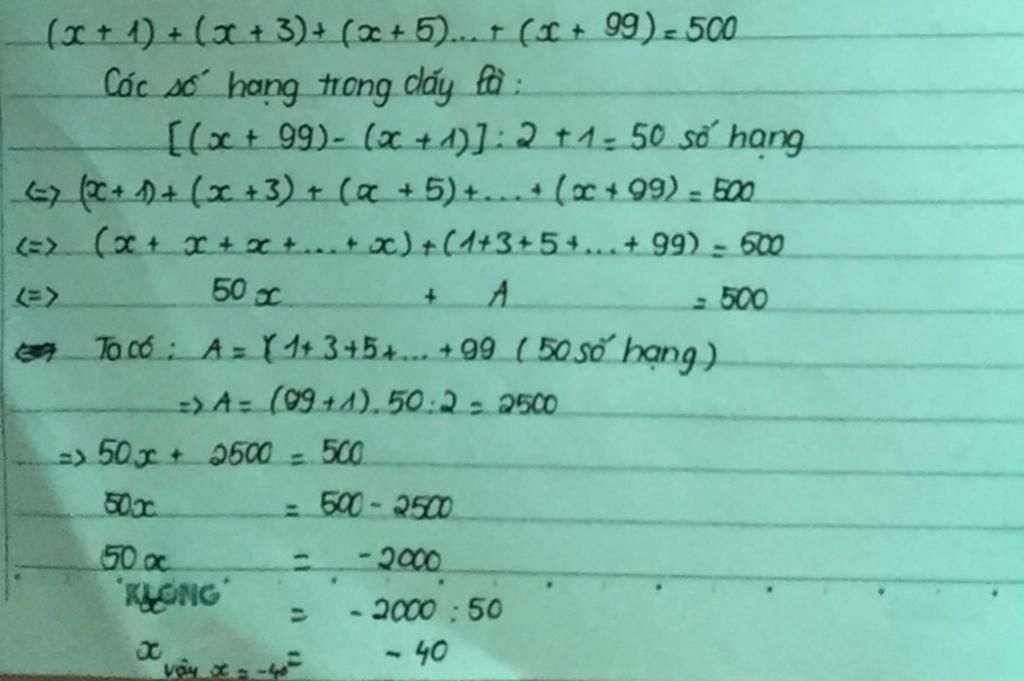 (x + 1) + (x + 3) + (x + 5)... + (x + 99) = 500
Các số hạng trong dãy là :
[(x + 99) - (x + 1)] : 2 + 1 = 50 số hạng
<=> (x + 1) + (x + 3) + (x + 5) + ... + (x + 99) = 500
<=> (x + x + x + ... + x) + (1 + 3 + 5 + ... + 99) = 500
<=> 50x + A = 500
Ta có : A = ( 1 + 3 + 5 + ... + 99 ( 50 số hạng )
=> A = (99 + 1) . 50 : 2 = 2500
=> 50x + 2500 = 500
50x = 500 - 2500
50x = -2000
KLONG
x = -2000 : 50
x = -40
vậy x = -40